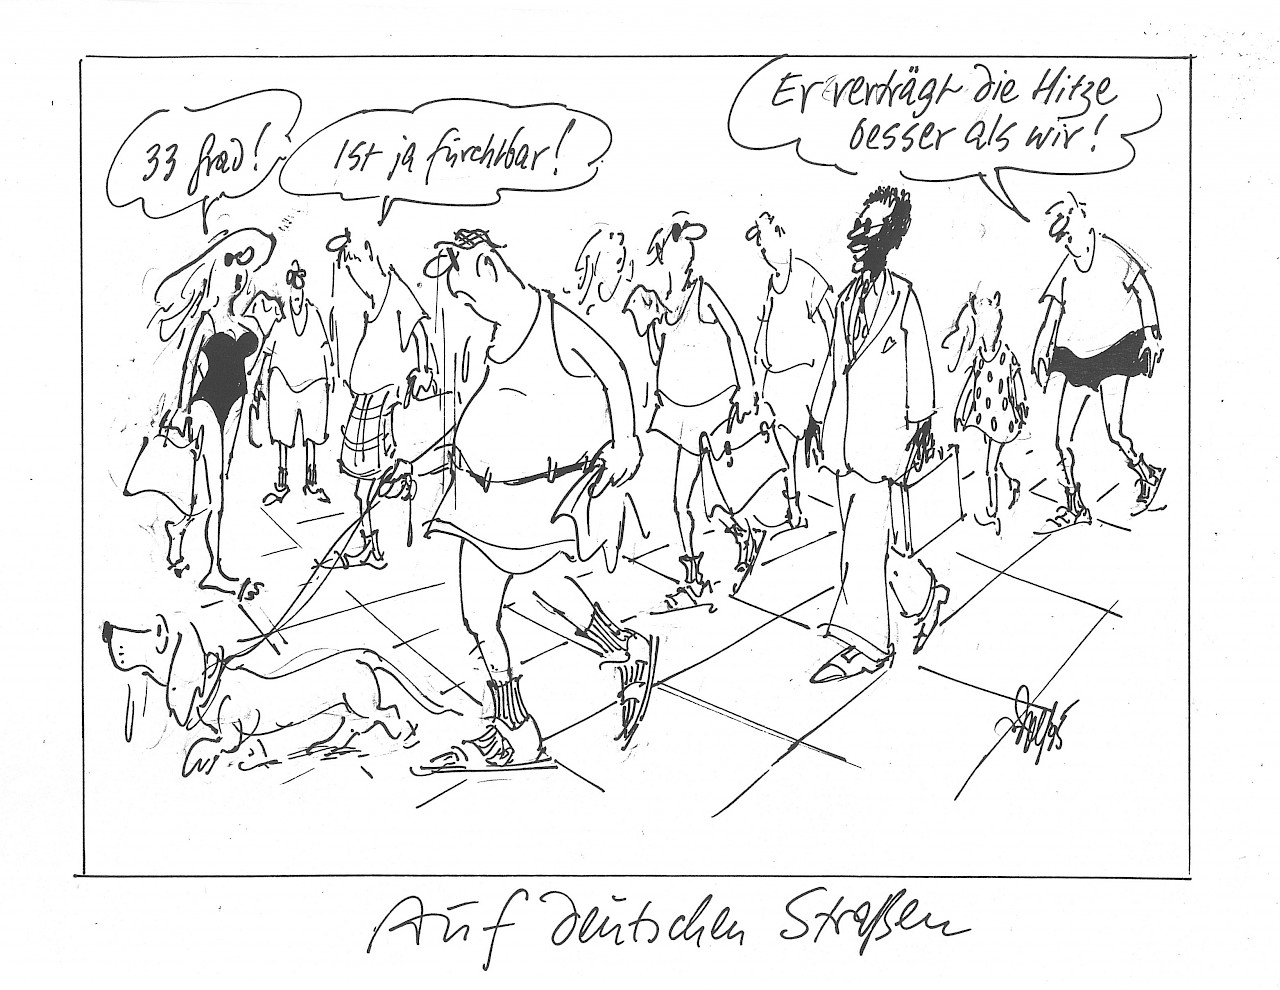 33 Grad!
Ist ja fürchtbar!
Er verträgt die Hitze
besser als wir!
Auf deutschen Straßen